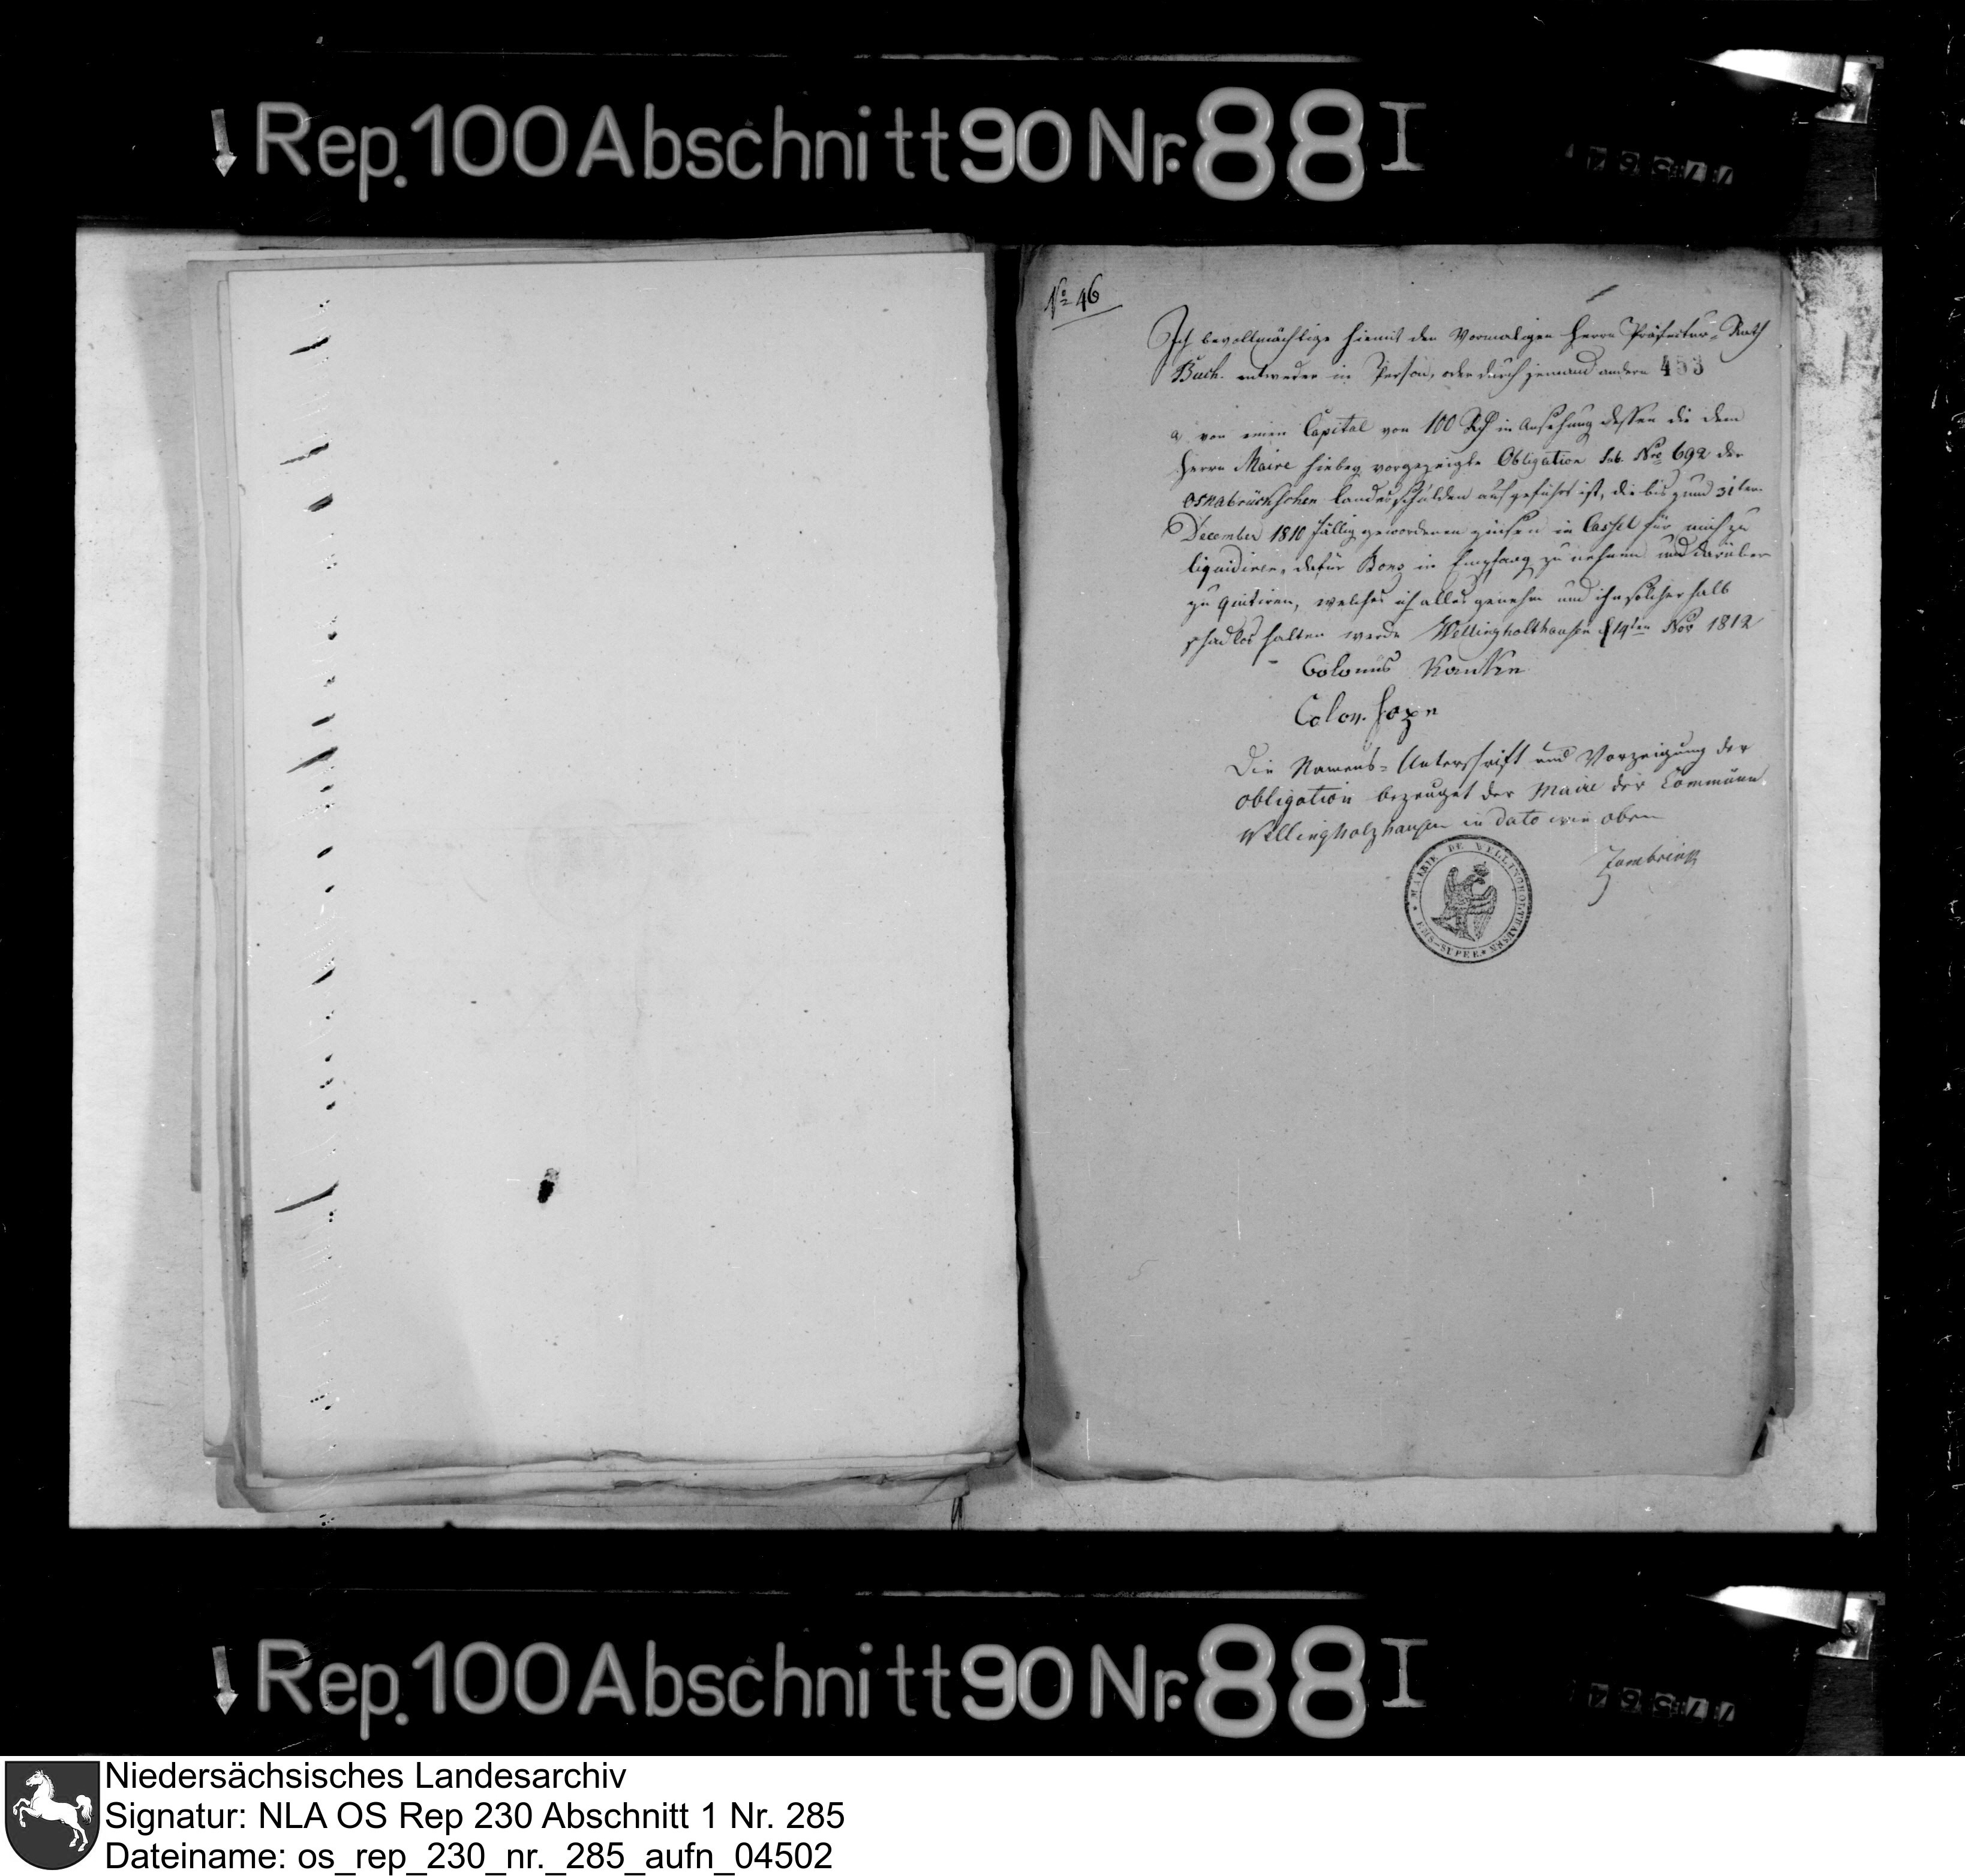 Rep. 100 Abschnitt 90 Nr. 88 I
No 46
Ich bevollmächtige hiemit den Vormaligen Herrn Präfectur-Rath
Buch. entweder in Person, oder durch jemand andern 453
a von einem Capital von 100 Rth in Ansehung dessen die dem
Herrn Maire hiebey vorgezeigte Obligation sub. Nro 692 der
Osnabrückschen Landesschulden aufgeführt ist, die bis zum 31ten
December 1810 fällig gewordenen Zinsen in Cassel für mich zu
liquidiren, dafür Bons in Empfang zu nehmen und darüber
zu quitiren, welches ich alles genehm und ihn solcherhalb
schadlos halten werde Wellingholthausen d 14ten Nov 1812
Colonus Kantke
Colon.
Die Namens-Unterschrift und Vorzeigung der
Obligation bezeuget der Maire der Commune
Wellingholzhausen in dato wie oben
MAIRIE DE WELLINGHOLTHAUSEN * EMS-SUPER *
Rep. 100 Abschnitt 90 Nr. 88 I
Niedersächsisches Landesarchiv
Signatur: NLA OS Rep 230 Abschnitt 1 Nr. 285
Dateiname: os_rep_230_nr._285_aufn_04502